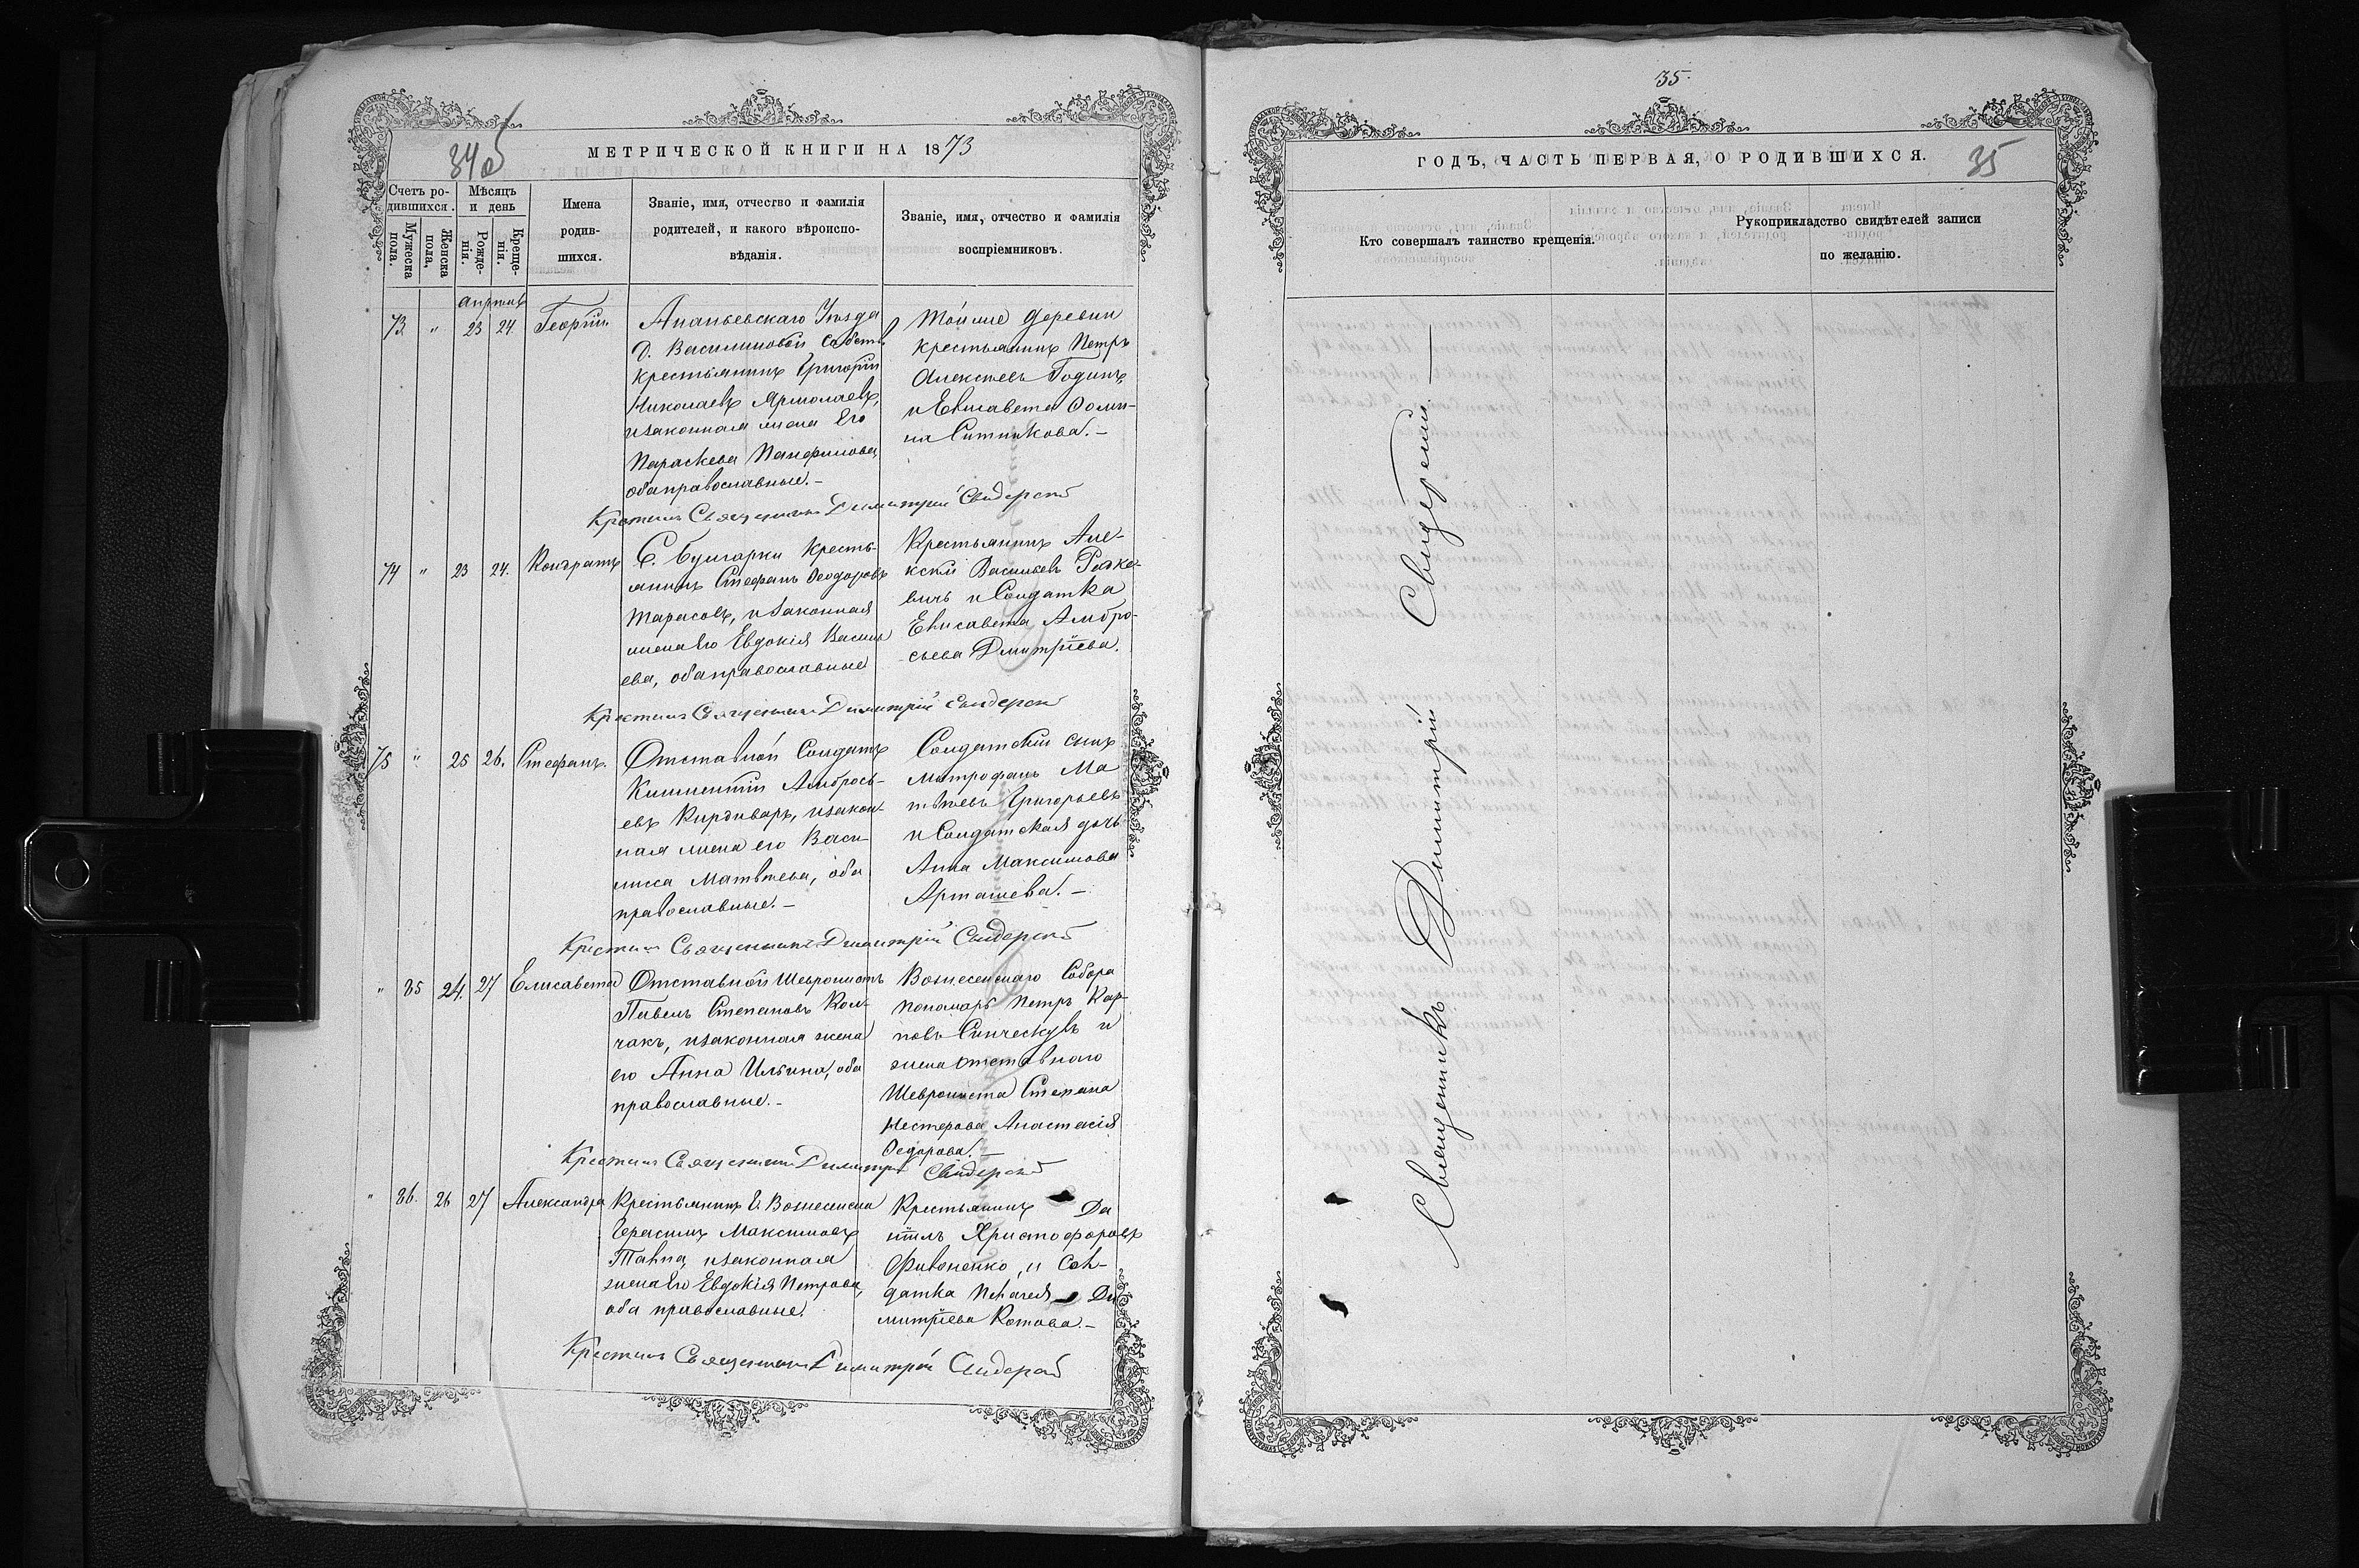 34об
МЕТРИЧЕСКОЙ КНИГИ НА 1873
Счетъ ро-
дившихся.
Мѣсяцъ
и день
Мужеска
пола.
Женска
пола.
Рожде-
нія.
Креще-
нія.
Имена
родив-
шихся.
Званіе, имя, отчество и фамилія
родителей, и какого вѣроиспо-
вѣданія.
Званіе, имя, отчество и фамилія
воспріемниковъ.
Апрѣль
73 " 23 24 Георгій
Ананьевскаго Уѣзда
д. Василиновой Собств
крестьянинъ Григорій
Николаевъ Ярмолаевъ,
и законная жена Его
Параскева Панфилова,
оба православные.-
Тойже деревни
крестьянинъ Петръ
Алексѣевъ Годинъ,
и Елисавета Ѳоми-
на Ситникова.-
Крестилъ Священникъ Димитрій Свидерскій
74 " 23 24. Кондратъ
С. Булгарки Кресть-
янинъ Стефанъ Ѳеодоровъ
Тарасовъ, и законная
жена Его Евдокія Василь
ева, оба православные
Крестьянинъ Але-
ксѣй Васильевъ
вичъ и Солдатка
Елисавета Амбро-
сьева Дмитріева.
Крестилъ Священникъ Димитрій Свидерскій
75 " 25 26. Стефанъ.
Отставной Солдатъ
Климентій Амбрось-
евъ Кирдиваръ, и закон-
ная жена его Васи-
лисса Матвѣева, оба
православные.-
Солдатскій сынъ
Митрофанъ Ма
твѣевъ Григорьевъ
и Солдатская дочь
Анна Максимова
Арташева.-
Крестилъ Священникъ Димитрій Свидерскій
" 35 24. 27 Елисавета
Отставной Шевронистъ
Павелъ Степановъ Кол-
чакъ, и законная жена
его Анна Ильина, оба
православные.-
Вознесенскаго Собора
пономарь Петръ Кар-
повъ Синческулъ и
жена отставнаго
Шеврониста Степана
Нестерова Анастасія
Ѳедорова.-
Крестилъ Священникъ Димитрій Свидерскій
" 36. 26 27 Александра
Крестьянинъ г. Вознесенска
Герасимъ Максимовъ
и законная
жена Его Евдокія Петрова,
оба православные.
Крестьянинъ Да
ніилъ Христофоровъ
Фивоненко, и Сол-
датка Пелагея Ди
митріева Котова.-
Крестилъ Священникъ Димитрій Свидерскій
35.
ГОДЪ, ЧАСТЬ ПЕРВАЯ, О РОДИВШИХСЯ.
35
Кто совершалъ таинство крещенія.
Рукоприкладство свидѣтелей записи
по желанію.
Священникъ Димитрій Свидерскій